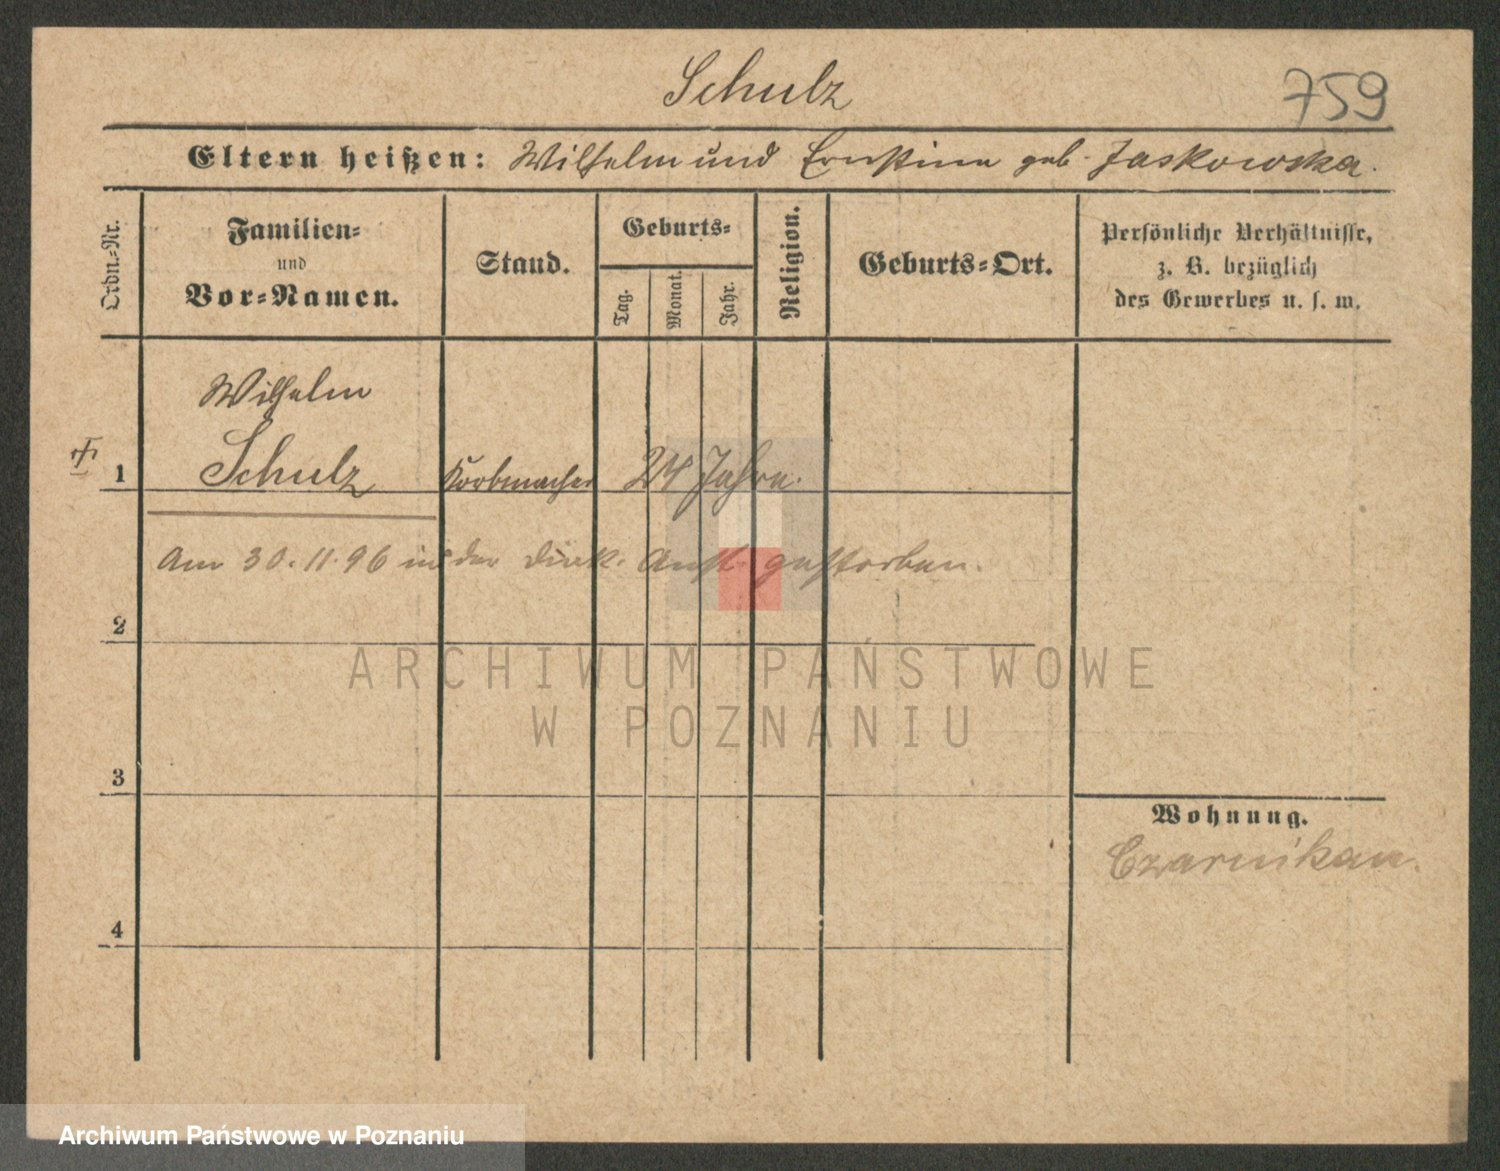 Schulz
759
Eltern heißen: Wilhelm und Ernstine geb. Jaskowska.
Ordn.-Nr.
Familien-
und
Vor-Namen.
Stand.
Geburts-
Tag.
Monat.
Jahr.
Religion.
Geburts-Ort.
Persönliche Verhältnisse,
z. B. bezüglich
des Gewerbes u. s. w.
Wilhelm
1 Schulz Korbmacher 24 Jahre.
Am 30.11.96 in der Diak. Anst. gestorben.
2
ARCHIWUM PAŃSTWOWE
W POZNANIU
3
Wohnung.
Czarnikau.
4
Archiwum Państwowe w Poznaniu